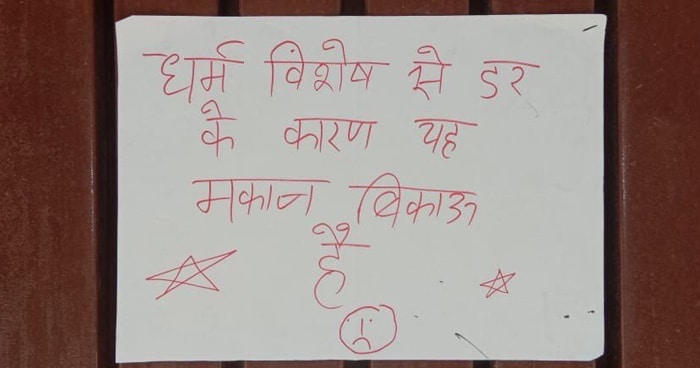 धर्म विशेष से डर
के कारण यह
मकान बिकाऊ
है